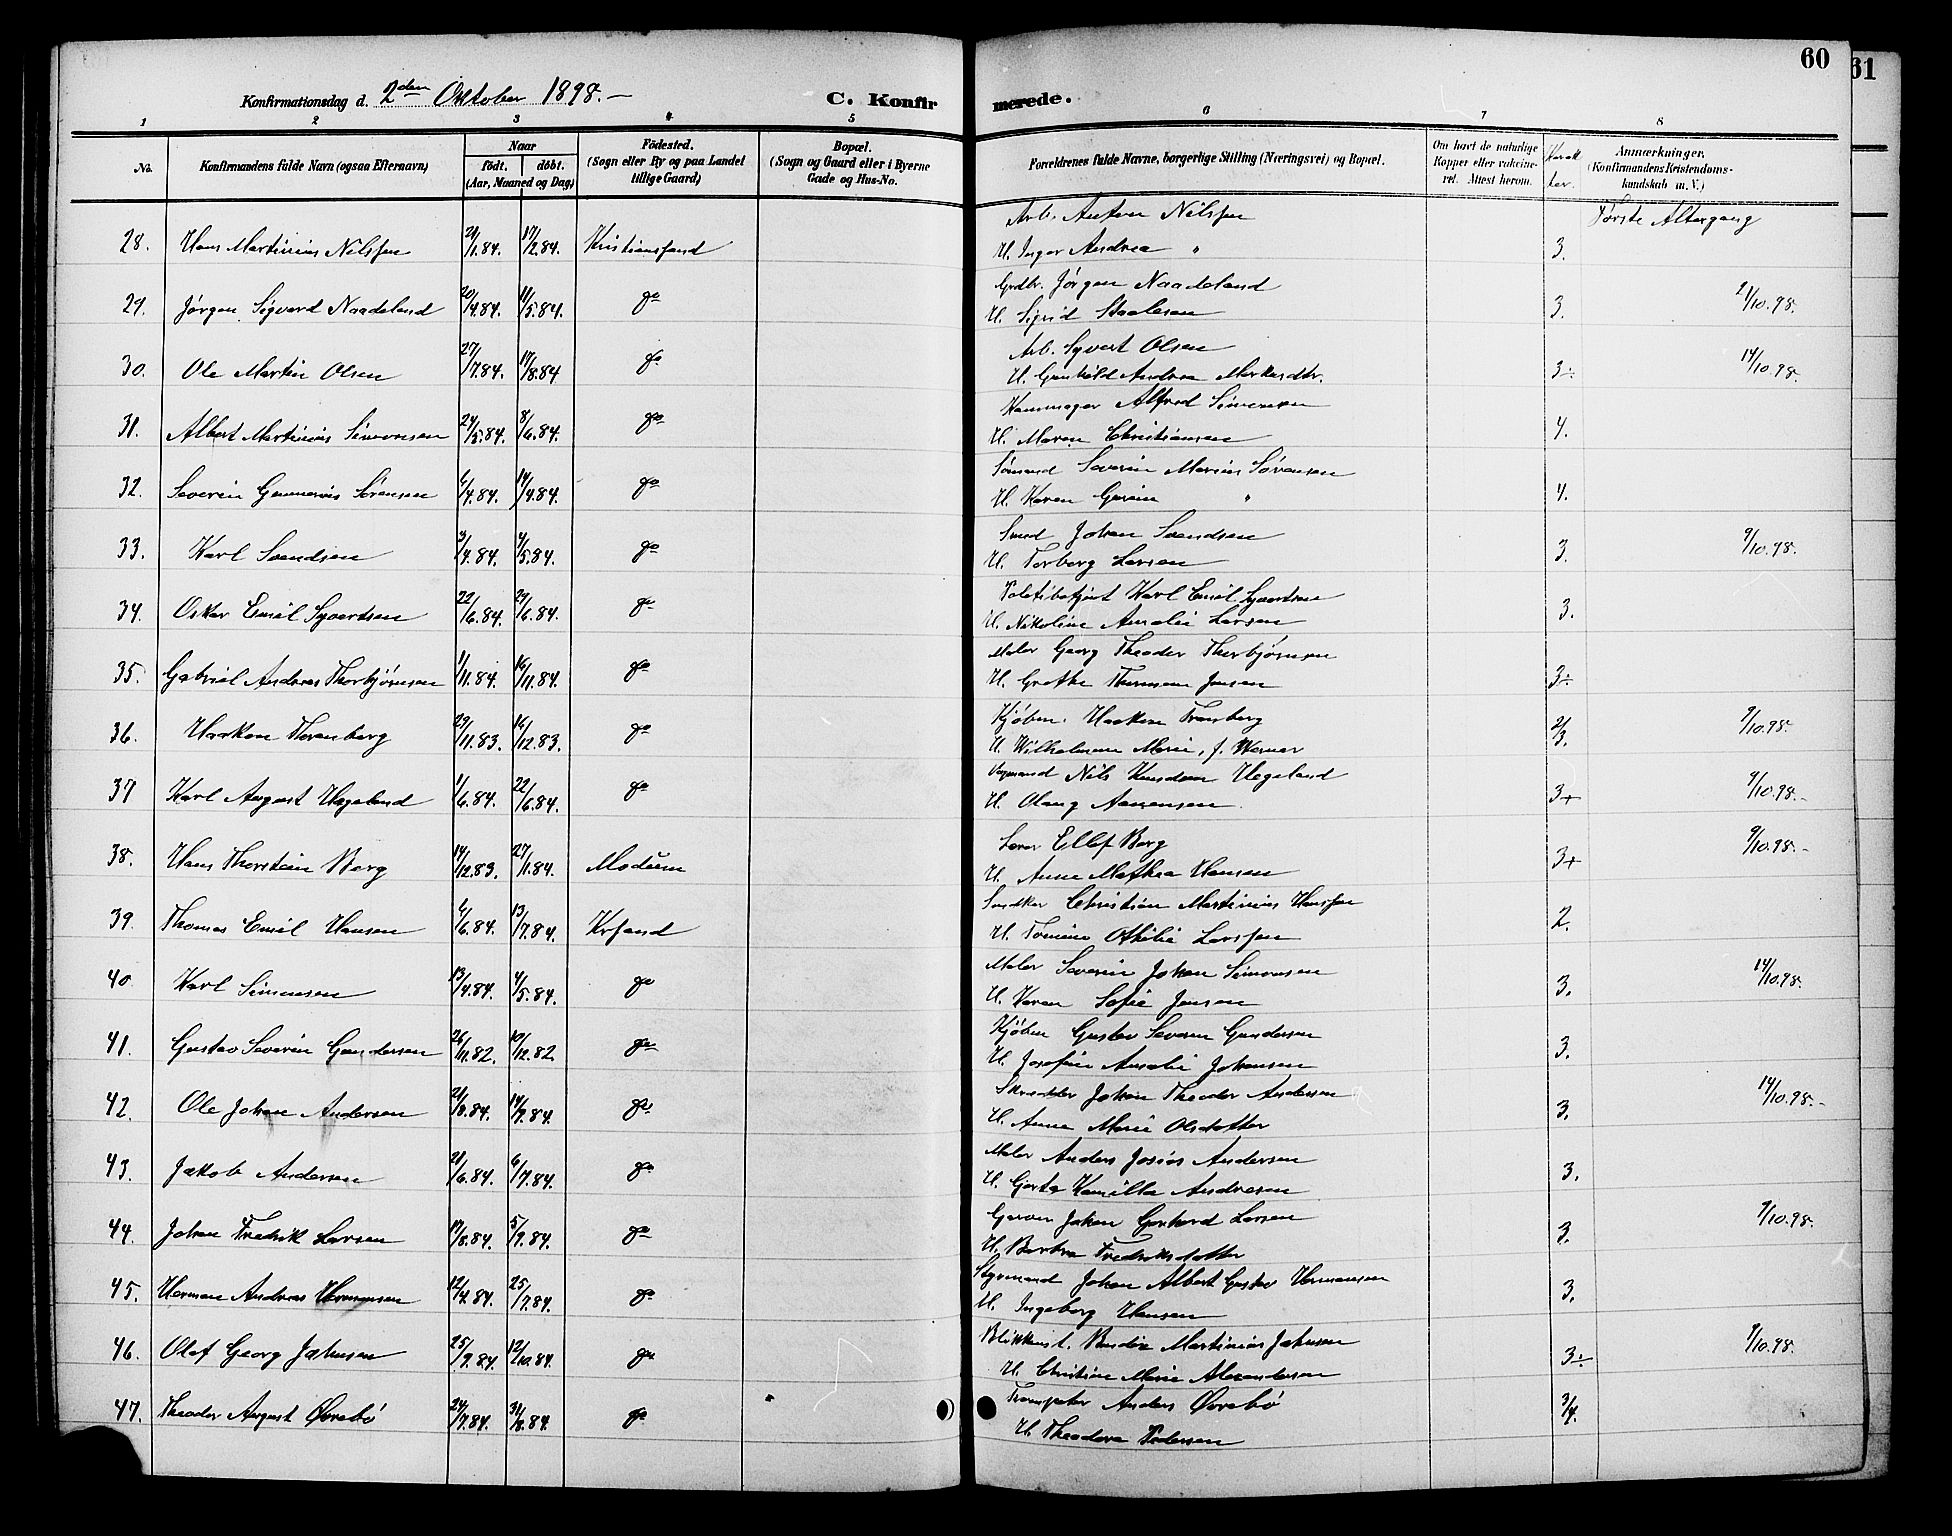 60
61
Konfirmationsdag d. 2den Oktober 1898.-
C. Konfirmerede.
1 2 3 4 5 6 7 8
No.
Konfirmandens fulde Navn (ogsaa Efternavn)
Naar
født. døbt.
(Aar, Maaned og Dag)
Fødested.
(Sogn eller By og paa Landet
tillige Gaard)
Bopæl.
(Sogn og Gaard eller i Byerne
Gade og Hus-No.
Forældrenes fulde Navne, borgerlige Stilling (Næringsvei) og Bopæl.
Om havt de naturlige
Kopper eller vaksine-
ret. Attest herom.
Karak
ter.
Anmærkninger.
(Konfirmandens Kristendoms-
kundskab m. V.)
Første Altergang
Arb. Anton Nilssen
28. Hans Martinius Nilssen 29/1.84. 17/2.84. Kristianssand H. Inger Andrea " 3.
Grdbr. Jørgen Naadeland
29. Jørgen Sigvard Naadeland 20/4.84. 11/5.84. do H. Sigrid Staalesen 3. 21/10.98.
Arb. Syvert Olsen
30. Ole Martin Olsen 27/7.84. 17/8.84 do H. Gunhild Andrea Markusdtr. 3÷ 14/10.98.
Alfred Simonsen
31. Albert Martinius Simonsen 24/5.84. 8/6.84. do H. Maren Christiansen 4.
Sømand Severin Marius Sørensen
32. Severin Gunnerius Sørensen 6/4.84. 14/4.84. do H. Karen Gurine " 4.
Smed Johan Svendsen
33. Karl Svendsen 3/4.84. 4/5.84. do H. Torborg Larsen 3. 9/10.98.
Politibetjent Karl Emil Syvertsen
34. Oskar Emil Syvertsen 22/6.84. 29/6.84. do H. Nikoline Amalie Larsen 3.
Maler Georg Theodor Thorbjørnsen
35. Gabriel Andreas Thorbjørnsen 1/11.84. 16/11.84. do H. Grethe Thomine Jensen 3÷
Kjøbm. Haakon
36. Haakon 29/11.83. 16/12.83. do H. Wilhelmine Marie, f. Werner 2/3. 9/10.98.
Vognmand Nils Knudsen Hægeland
37 Karl August Hægeland 1/6.84. 22/6.84. do H. Olaug Aanensen. 3+ 9/10.98.-
Lærer Ellef Berg
38. Hans Thorstein Berg 14/12.83. 27/1.84. Modum H. Anne Mathea Hansen 3+ 9/10.98.-
Snedker Christian Martinius Hanssen
39. Thomas Emil Hansen 6/6.84. 13/7.84. Krsand H. Tomine Othilie Larssen 2.
Maler Severin Johan Simonsen
40. Karl Simonsen 13/4.84. 4/5.84. do H. Karen Sofie Jensen 3. 14/10.98.
Kjøbm Gustav Severin Gundersen
41. Gustav Severin Gundersen 26/11.82. 10/12.82. do H. Josefine Amalie Johansen 3.
Skrædder Johan Theodor Andersen
42. Ole Johan Andersen 21/8.84. 14/9.84. do H. Anne Marie Olsdatter 3. 14/10.98.-
Maler Anders Josias Andersen
43. Jakob Andersen 21/6.84. 6/7.84. do H. Kamilla Andresen 3.
Garver Johan Gerhard Larsen
44. Johan Fredrik Larsen 17/8.84. 5/9.84. do H. Barbra Fredriksdatter 3. 9/10.98.
Styrmand Johan Albert Gustav Hermansen
45. Herman Andreas Hermansen 12/4.84. 25/7.84. do H. Ingeborg Hansen 3.
Blikkensl. Martinius Jakobsen
46. Olaf Georg Jakobsen 25/9.84. 12/10.84. do H. Christine Marie Alexandersen 3÷ 9/10.98.
Trompeter Anders Øvrebø
47. Theodor August Øvrebø 24/7.84. 31/8.84. do H. Theodora Pedersen 3/4.